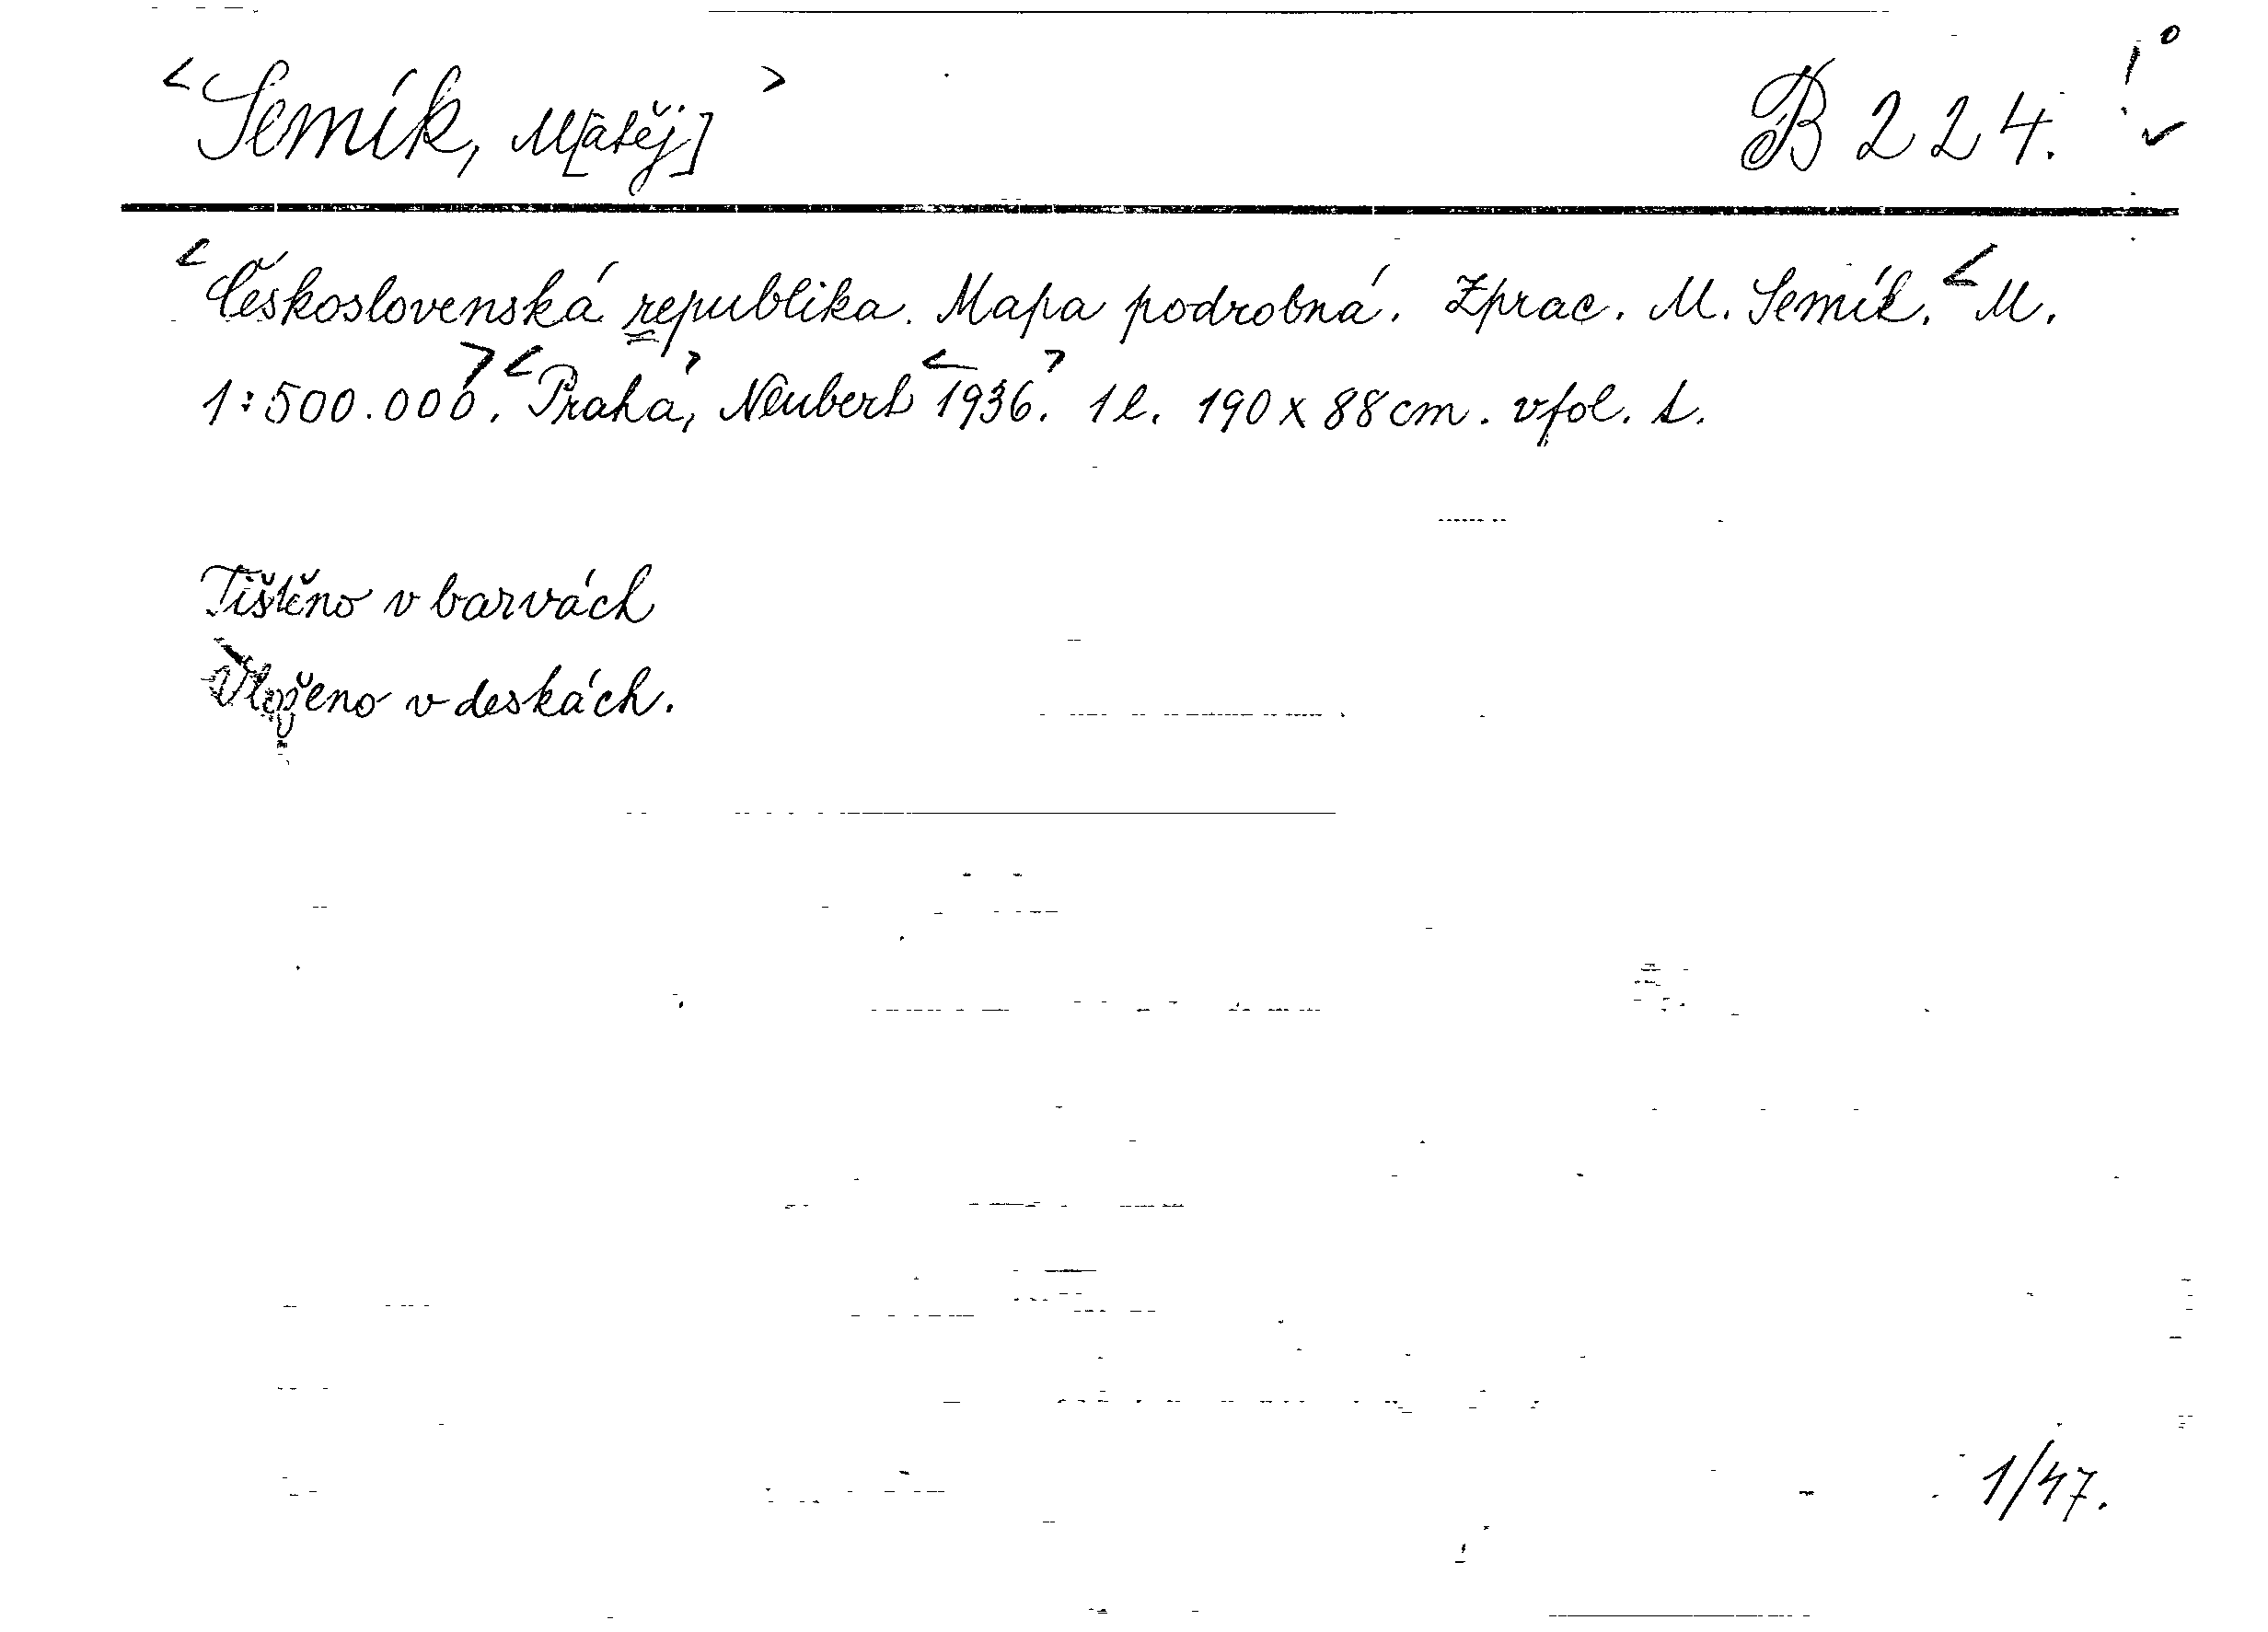 <Semík, M[atěj]> B 224. !°✓
<Československá republika. Mapa podrobná. Zprac. M. Semík. <M.
1:500.000>. <Praha>, Neubert <1936>. 1 l. 190 x 88 cm. vfol. t.
Tištěno v barvách
Vloženo v deskách.
1/47.